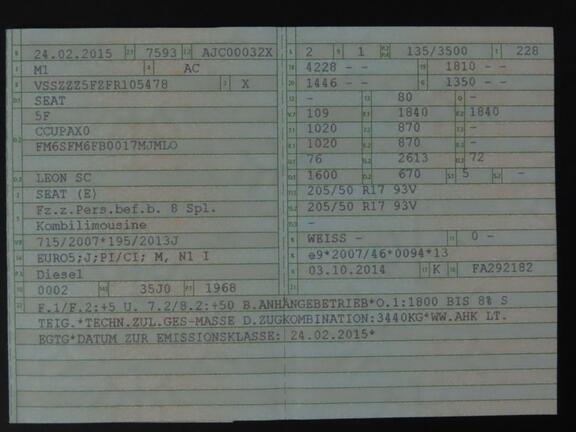 24.02.2015 7593 AJC00032X
M1 AC
VSSZZZ5FZFR105478 X
SEAT
5F
CCUPAX0
FM6SFM6FB0017MJMLO
LEON SC
SEAT (E)
Fz.z.Pers.bef.b. 8 Spl.
Kombilimousine
715/2007*195/2013J
EURO5;J;PI/CI; M, N1 I
Diesel
0002 35J0 1968
2 1 135/3500 228
4228 - - 1810 - -
1446 - - 1350 - -
- 80 -
109 1840 1840
1020 870 -
1020 870 -
76 2613 72
1600 670 5 -
205/50 R17 93V
205/50 R17 93V
-
WEISS - 0 -
e9*2007/46*0094*13
03.10.2014 K FA292182
F.1/F.2:+5 U. 7.2/8.2:+50 B.ANHÄNGEBETRIEB*O.1:1800 BIS 8% S
TEIG.*TECHN.ZUL.GES-MASSE D.ZUGKOMBINATION:3440KG*WW.AHK LT.
EGTG*DATUM ZUR EMISSIONSKLASSE: 24.02.2015*